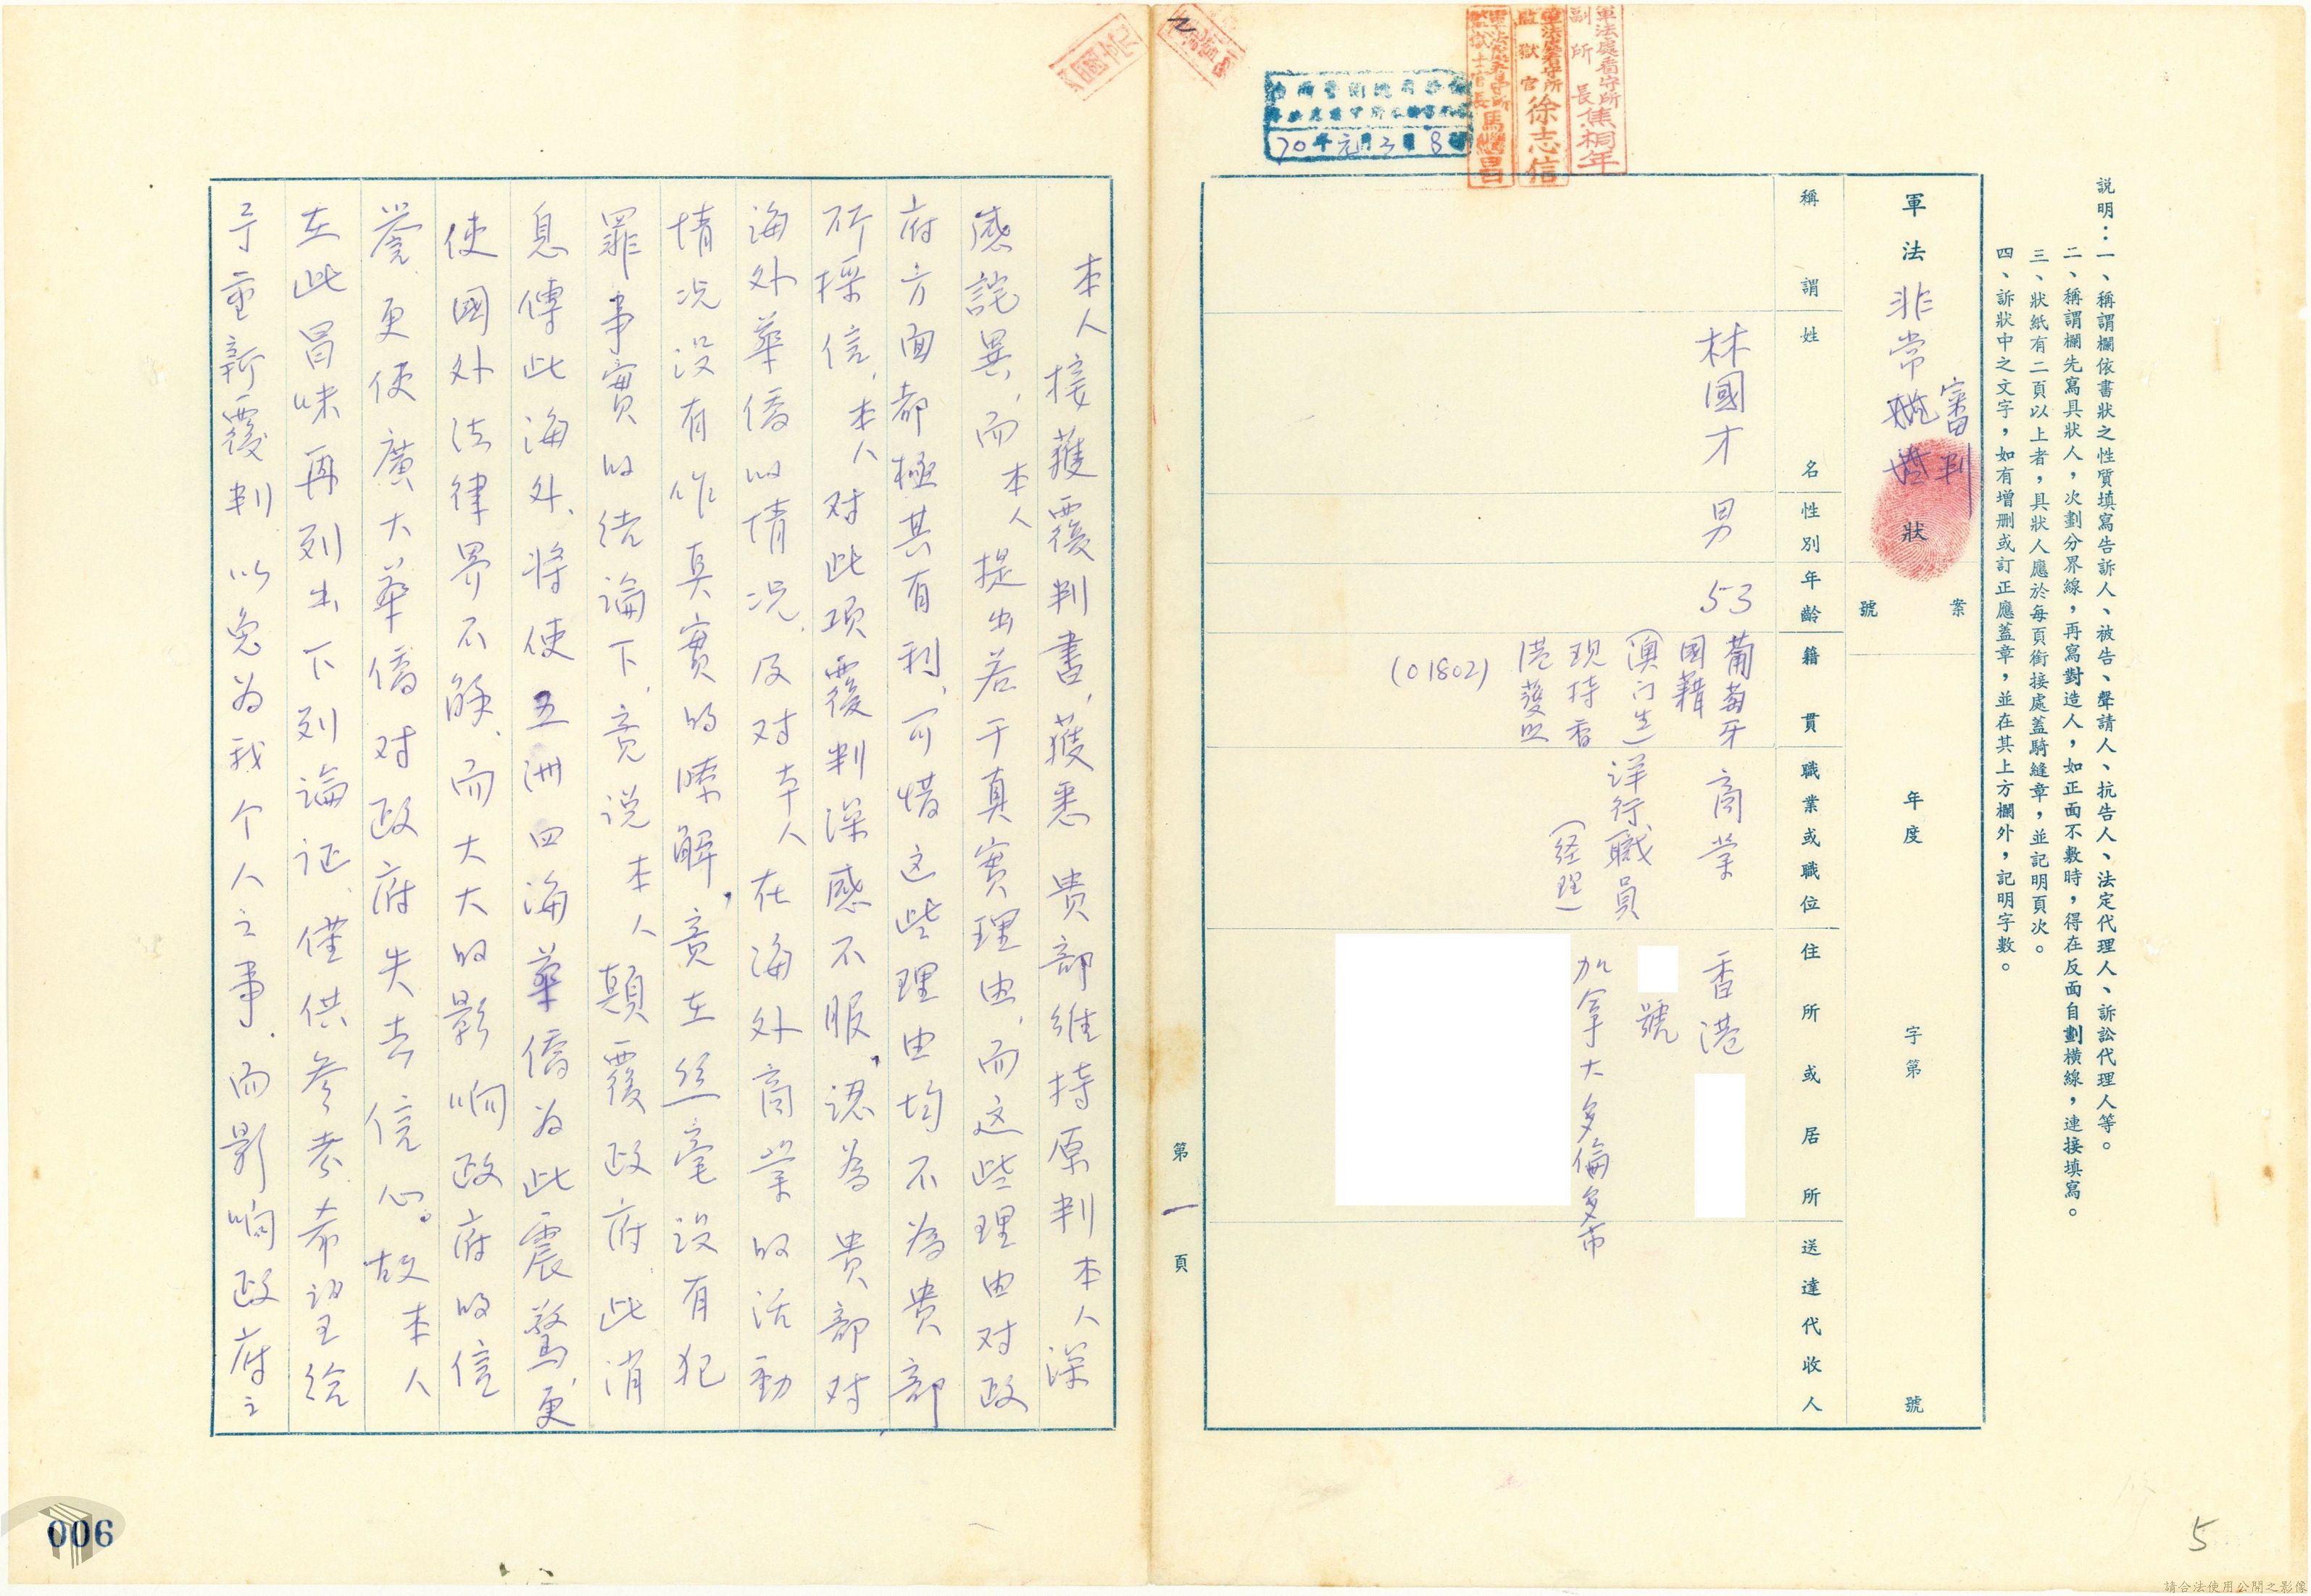 說明：一、稱謂欄依書狀之性質填寫告訴人、被告、聲請人、抗告人、法定代理人、訴訟代理人等。
二、稱謂欄先寫具狀人，次劃分界線，再寫對造人，如正面不敷時，得在反面自劃橫線，連接填寫。
三、狀紙有二頁以上者，具狀人應於每頁銜接處蓋騎縫章，並記明頁次。
四、訴狀中之文字，如有增刪或訂正應蓋章，並在其上方欄外，記明字數。
軍法非常審判狀
案號
年度
字第
號
稱謂
姓名
性別
年齡
籍貫
職業或職位
住所或居所
送達代收人
林國才
男
53
葡萄牙
國籍
(澳门生)
現持香
港護照
(01802)
商業
洋行職員
(経理)
香港
號
加拿大多倫多市
軍法處看守所
副所長焦桐年
軍法處看守所
監獄官徐志信
70年元月3日8時
第一頁
本人接獲覆判書，獲悉 貴部維持原判本人深
感詫異，而本人提出若干真實理由，而这些理由对政
府方面都極其有利，可惜这些理由均不為貴部
所採信，本人对此項覆判深感不服，認為 貴部对
海外華僑的情况，及对本人在海外商業的活動
情况沒有作真實的瞭解，竟在絲毫沒有犯
罪事實的结論下，竟说本人顛覆政府，此消
息傳此海外，将使五洲四海華僑為此震驚，更
使國外法律界不解，而大大的影响政府的信
譽，更使廣大華僑对政府失去信心。故本人
在此冒昧再列出下列論证，僅供參考，希望给
予重新覆判以免为我个人之事，而影响政府之
006
5
請合法使用公開之影像